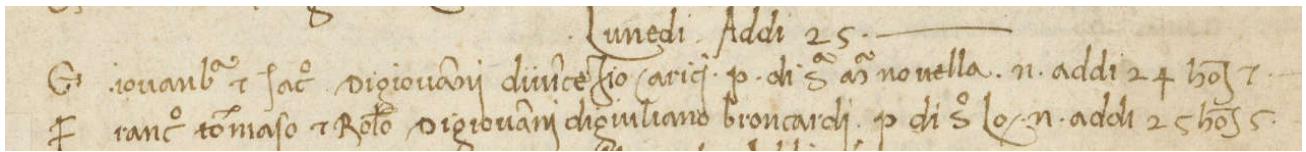 Lunedi Addi 25
Giovanb.a et Jac.o di giovanni di vincentio (arici. p. di S.a M.a novella. n. addi 24 hor 7
Franc.o tommaso et Rob.to di giovanni di giuliano broncardi. p di S.o Lo. n. addi 25 hor 5.